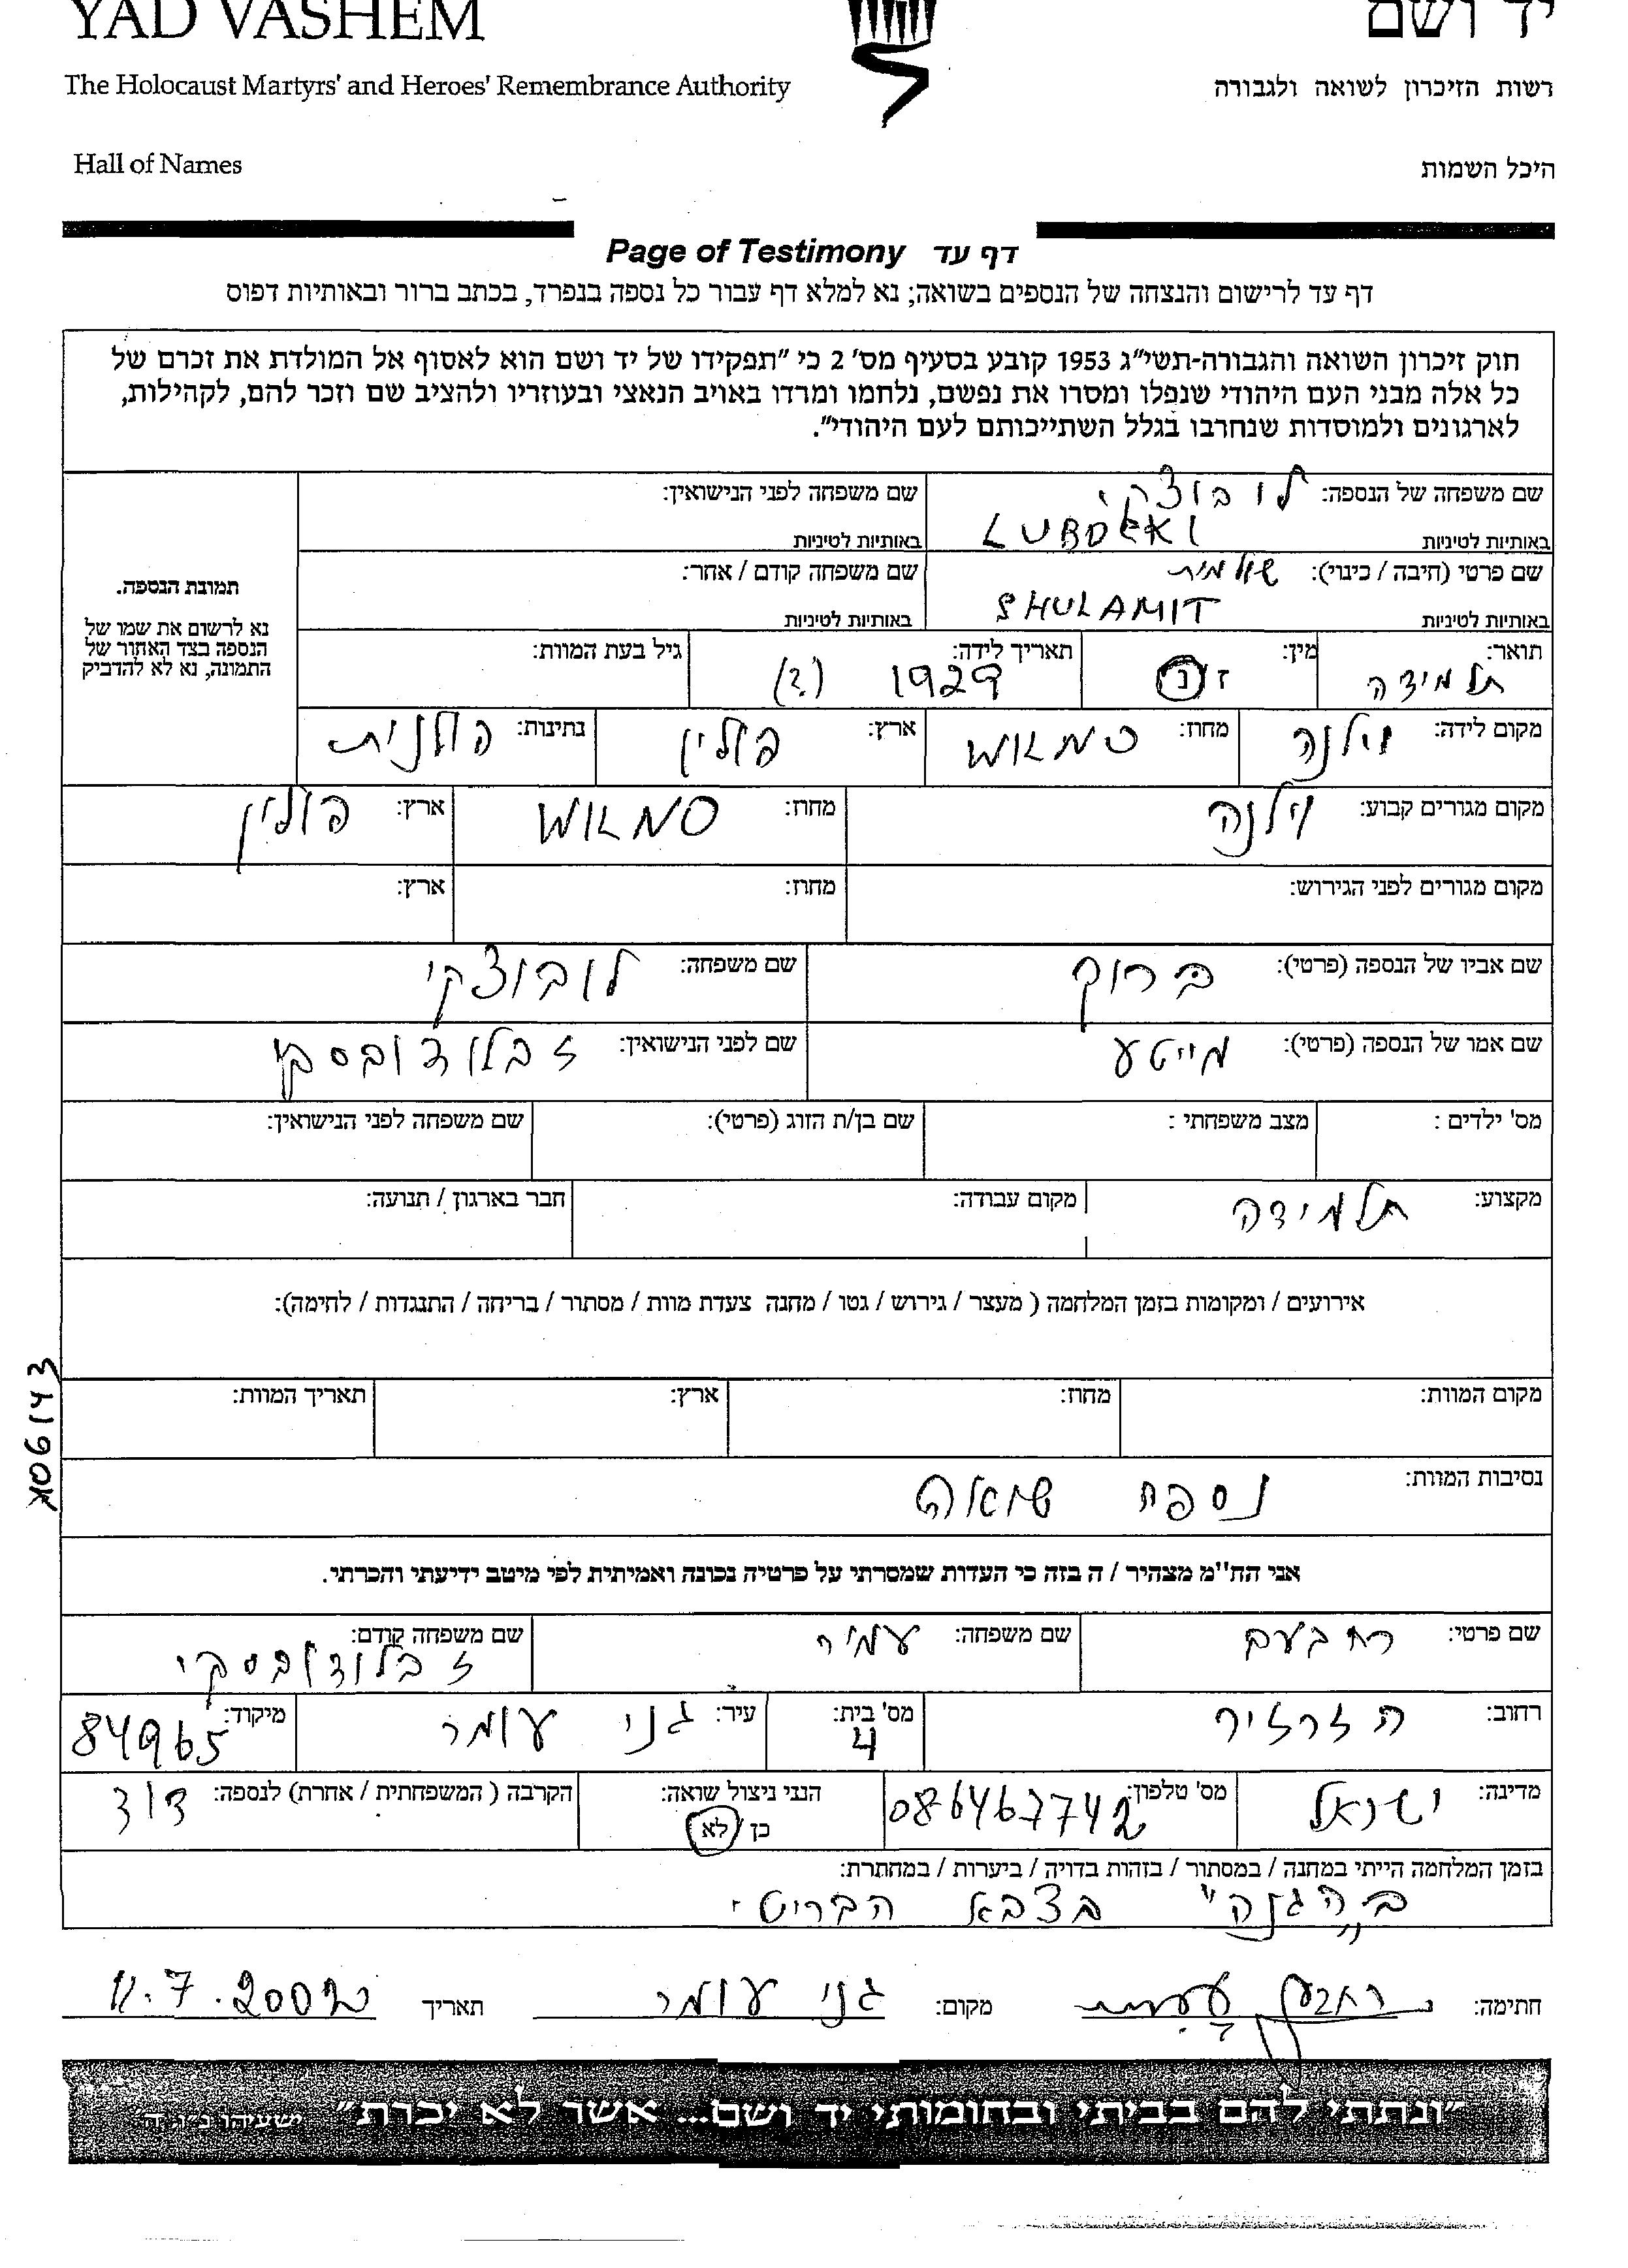 YAD VASHEM
יד ושם
The Holocaust Martyrs' and Heroes' Remembrance Authority
רשות הזיכרון לשואה ולגבורה
Hall of Names
היכל השמות
Page of Testimony דף עד
דף עד לרישום והנצחה של הנספים בשואה; נא למלא דף עבור כל נספה בנפרד, בכתב ברור ובאותיות דפוס
חוק זיכרון השואה והגבורה-תשי"ג 1953 קובע בסעיף מס' 2 כי "תפקידו של יד ושם הוא לאסוף אל המולדת את זכרם של
כל אלה מבני העם היהודי שנפלו ומסרו את נפשם, נלחמו ומרדו באויב הנאצי ובעוזריו ולהציב שם וזכר להם, לקהילות,
לארגונים ולמוסדות שנחרבו בגלל השתייכותם לעם היהודי".
שם משפחה של הנספה: לובוצקי
באותיות לטיניות
שם משפחה לפני הנישואין:
באותיות לטיניות
שם פרטי (חיבה / כינוי): שולמית
באותיות לטיניות SHULAMIT
שם משפחה קודם / אחר:
באותיות לטיניות
תמונת הנספה.
נא לרשום את שמו של
הנספה בצד האחור של
התמונה, נא לא להדביק
תואר: תלמידה
מין: ז / נ
תאריך לידה: 1929 (?)
גיל בעת המוות:
מקום לידה: וילנה
מחוז:
ארץ: פולין
נתינות: פולנית
מקום מגורים קבוע: וילנה
מחוז:
ארץ: פולין
מקום מגורים לפני הגירוש:
מחוז:
ארץ:
שם אביו של הנספה (פרטי): ברוך
שם משפחה: לובוצקי
שם אמו של הנספה (פרטי): מייטע
שם לפני הנישואין: זבלודובסקי
מס' ילדים :
מצב משפחתי :
שם בן/ת הזוג (פרטי):
שם משפחה לפני הנישואין:
מקצוע: תלמידה
מקום עבודה:
חבר בארגון / תנועה:
אירועים / ומקומות בזמן המלחמה ( מעצר / גירוש / גטו / מחנה צעדת מוות / מסתור / בריחה / התנגדות / לחימה):
מקום המוות:
מחוז:
ארץ:
תאריך המוות:
נסיבות המוות: נספח שואה
אני הח"מ מצהיר / ה בזה כי העדות שמסרתי על פרטיה נכונה ואמיתית לפי מיטב ידיעתי והכרתי.
שם פרטי: רחבעם
שם משפחה: עמיר
שם משפחה קודם: זבלודובסקי
רחוב: הזרזיר
מס' בית: 4
עיר: גני עומר
מיקוד: 84965
מדינה: ישראל
מס' טלפון: 086467742
הנני ניצול שואה: כן / לא
הקרבה ( המשפחתית / אחרת) לנספה: דוד
בזמן המלחמה הייתי במחנה / במסתור / בזהות בדויה / ביערות / במחתרת:
ב"הגנה" בצבא הבריטי
חתימה: רחבעם עמיר
מקום: גני עומר
תאריך 11.7.2002
"ונתתי להם בביתי ובחומותי יד ושם... אשר לא יכרת" ישעיהו נ"ו ה'